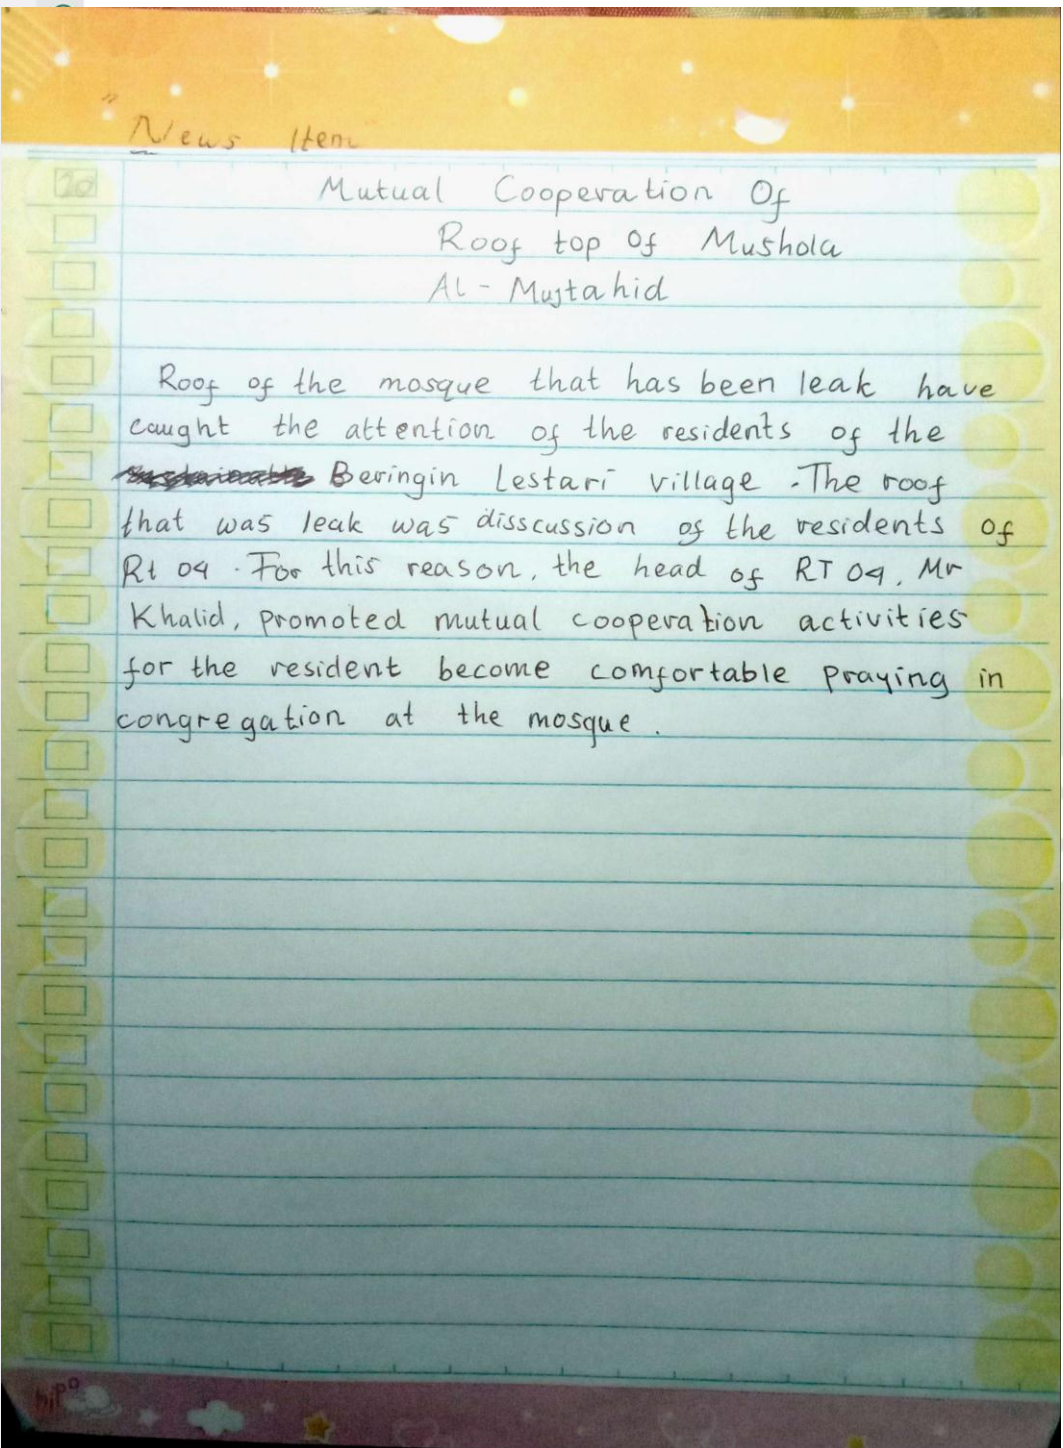 "News Item
20
Mutual Cooperation Of
Roof top Of Mushola
Al - Mujtahid
Roof of the mosque that has been leak have
caught the attention of the residents of the
Beringin Lestari village . The roof
that was leak was disscussion of the residents of
Rt 04 . For this reason, the head of RT 04, Mr
Khalid, promoted mutual cooperation activities
for the resident become comfortable praying in
congregation at the mosque .
hipo